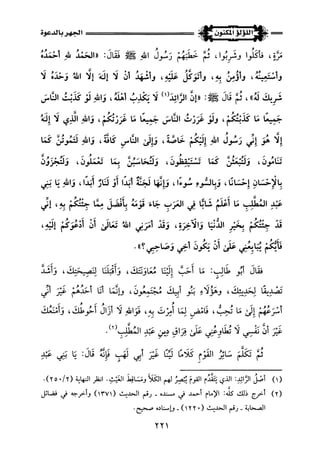 الجهر بالدعوة
اللؤلؤ المكنون
مَرَّةٍ، فَأَكَلُوا، وَشَرِبُوا، ثُمَّ خَطَبَهُمْ رَسُولُ اللهِ ﷺ فَقَالَ: «الحَمْدُ للهِ أَحْمَدُهُ
وَأَسْتَعِينُهُ، وَأُؤْمِنُ بِهِ، وَأَتَوَكَّلُ عَلَيْهِ، وَأَشْهَدُ أَنْ لَا إِلَهَ إِلَّا اللهُ وَحْدَهُ لَا
شَرِيكَ لَهُ»، ثُمَّ قَالَ ﷺ: «إِنَّ الرَّائِدَ(١) لَا يَكْذِبُ أَهْلَهُ، وَاللهِ لَوْ كَذَبْتُ النَّاسَ
جَمِيعًا مَا كَذَبْتُكُمْ، وَلَوْ غَرَرْتُ النَّاسَ جَمِيعًا مَا غَرَرْتُكُمْ، وَاللهِ الَّذِي لَا إِلَهَ
إِلَّا هُوَ إِنِّي رَسُولُ اللهِ إِلَيْكُمْ خَاصَّةً، وَإِلَى النَّاسِ كَافَّةً، وَاللهِ لَتَمُوتُنَّ كَمَا
تَنَامُونَ، وَلَتُبْعَثُنَّ كَمَا تَسْتَيْقِظُونَ، وَلَتُحَاسَبُنَّ بِمَا تَعْمَلُونَ، وَلَتُجْزَوُنَّ
بِالْإِحْسَانِ إِحْسَانًا، وَبِالسُّوءِ سُوءًا، وَإِنَّهَا لَجَنَّةٌ أَبَدًا أَوْ لَنَارٌ أَبَدًا، وَاللهِ يَا بَنِي
عَبْدِ المُطَّلِبِ مَا أَعْلَمُ شَابًّا فِي العَرَبِ جَاءَ قَوْمَهُ بِأَفْضَلَ مِمَّا جِئْتُكُمْ بِهِ، إِنِّي
قَدْ جِئْتُكُمْ بِخَيْرِ الدُّنْيَا وَالآخِرَةِ، وَقَدْ أَمَرَنِي اللهُ تَعَالَى أَنْ أَدْعُوَكُمْ إِلَيْهِ،
فَأَيُّكُمْ يُبَايِعُنِي عَلَى أَنْ يَكُونَ أَخِي وَصَاحِبِي؟».
فَقَالَ أَبُو طَالِبٍ: مَا أَحَبَّ إِلَيْنَا مُعَاوَنَتَكَ، وَأَقْبَلَنَا لِنَصِيحَتِكَ، وَأَشَدَّ
تَصْدِيقًا لِحَدِيثِكَ، وَهَؤُلَاءِ بَنُو أَبِيكَ مُجْتَمِعُونَ، وَإِنَّمَا أَنَا أَحَدُهُمْ غَيْرَ أَنِّي
أَسْرَعُهُمْ إِلَى مَا تُحِبُّ، فَامْضِ لِمَا أُمِرْتَ بِهِ، فَوَاللهِ لَا أَزَالُ أَحُوطُكَ، وَأَمْنَعُكَ،
غَيْرَ أَنَّ نَفْسِي لَا تُطَاوِعُنِي عَلَى فِرَاقِ دِينِ عَبْدِ المُطَّلِبِ(٢).
ثُمَّ تَكَلَّمَ سَائِرُ القَوْمِ كَلَامًا لَيِّنًا غَيْرَ أَبِي لَهَبٍ، فَإِنَّهُ قَالَ: يَا بَنِي عَبْدِ
(١) أَصْلُ الرَّائِدِ: الذي يَتَقَدَّمُ القومَ يُبْصِرُ لهم الكَلَأَ وَمَسَاقِطَ الغَيْثِ. انظر النهاية (٢/٢٥٠).
(٢) أخرج ذلك كلَّه: الإمام أحمد في مسنده ـ رقم الحديث (١٣٧١) وأخرجه في فضائل
الصحابة ـ رقم الحديث (١٢٢٠) ـ وإسناده صحيح.
٢٢١